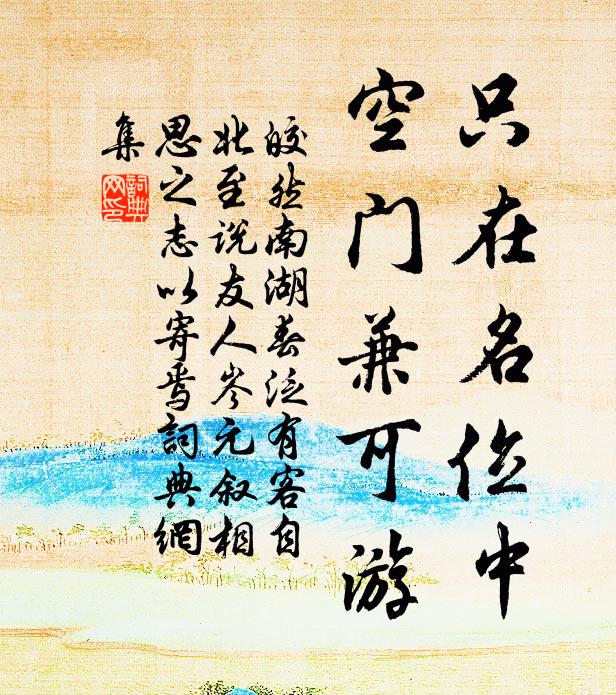 只在名位中
空門兼可游
皎然南湖春泛有客自
北至说友人岑元叙相
思之志以寄焉詞典網
集
詞典
网印